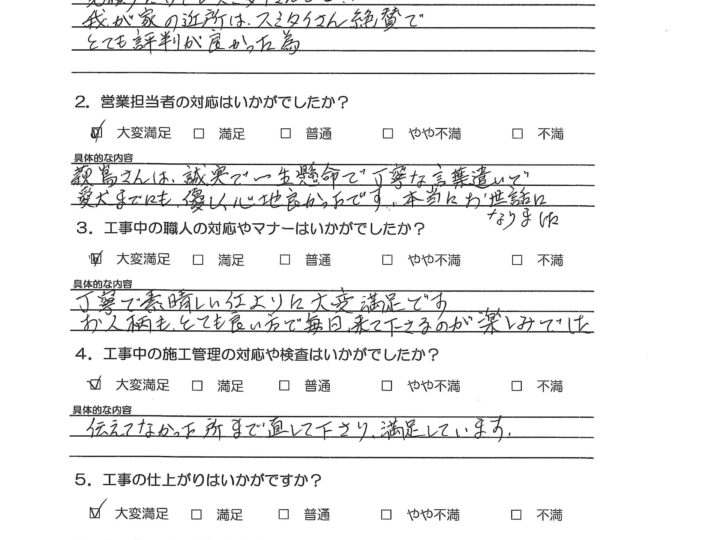 我が家の近所は、スミタイさん絶賛で
とても評判が良かった為
2. 営業担当者の対応はいかがでしたか？
☑ 大変満足 □ 満足 □ 普通 □ やや不満 □ 不満
具体的な内容
さんは、誠実で一生懸命で丁寧な言葉遣いで
愛犬までにも、優しく、心地良かったです、本当にお世話に
なりました
3. 工事中の職人の対応やマナーはいかがでしたか？
☑ 大変満足 □ 満足 □ 普通 □ やや不満 □ 不満
具体的な内容
丁寧で素晴しい仕上りに大変満足です
お人柄も、とても良い方で毎日、来て下さるのが楽しみでした
4. 工事中の施工管理の対応や検査はいかがでしたか？
☑ 大変満足 □ 満足 □ 普通 □ やや不満 □ 不満
具体的な内容
伝えてなかった所まで直して下さり、満足しています。
5. 工事の仕上がりはいかがですか？
☑ 大変満足 □ 満足 □ 普通 □ やや不満 □ 不満